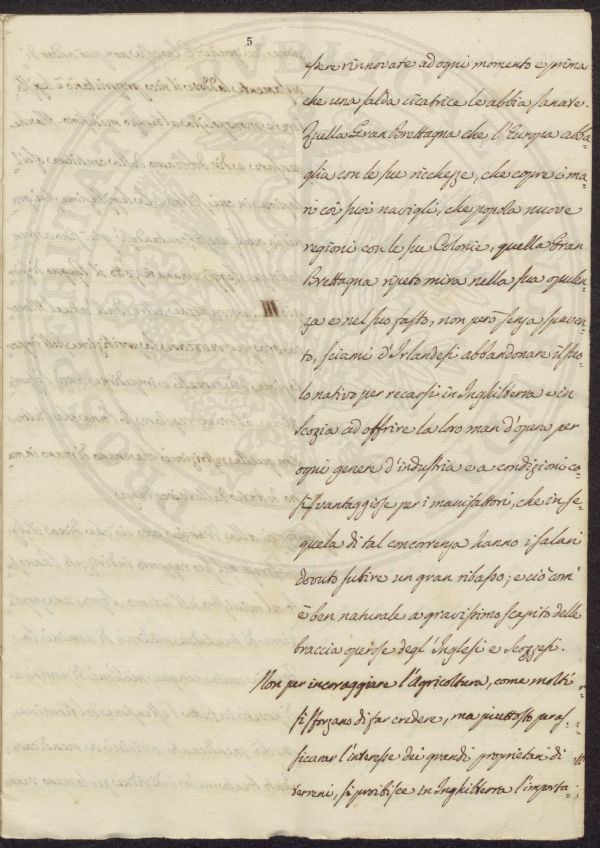 5
ssere rinnovate ad ogni momento e prima
che una salda cicatrice le abbia sanate.
Quella Gran Brettagna che l'Europa abba=
glia con le sue ricchezze, che copre i ma=
ri coi suoi navigli, che popola nuove
regioni con le sue Colonie, quella Gran
Brettagna ripeto mira nella sua opulen=
za e nel suo fasto, non però senza spaven=
to, sciami d'Irlandesi abbandonare il suo=
lo nativo per recarsi in Inghilterra e in
Scozia ad offrire la loro man d'opera per
ogni genere d'industria e a condizioni co=
sì vantaggiose per i manifattori, che in se=
quela di tal concorrenza hanno i salari
dovuto subire un gran ribasso; e ciò com'
è ben naturale a gravissimo scapito delle
braccia operose degl'Inglesi e Scozzesi.
Non per incoraggiare l'Agricoltura, come molti
si sforzano di far credere, ma piuttosto per as=
sicurar l'interesse dei grandi proprietari di
terreni, si proibisce in Inghilterra l'importa=
III